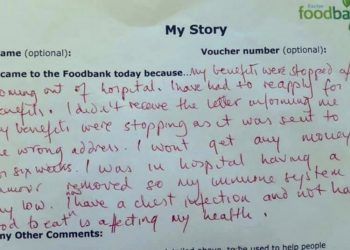 Exeter
foodbank
My Story
ame (optional):
Voucher number (optional):
came to the Foodbank today because... My benefits were stopped af
oming out of hospital. I have had to reapply for
enefits. I didn't receive the letter informing me
y benefits were stopping as it was sent to
e wrong address. I wont get any money
or six weeks. I was in hospital having a
umour removed so my immune system
ry low. I have a chest infection and not ha
ood to eat is affecting my health.
ny Other Comments:
detailed above, to be used to help people